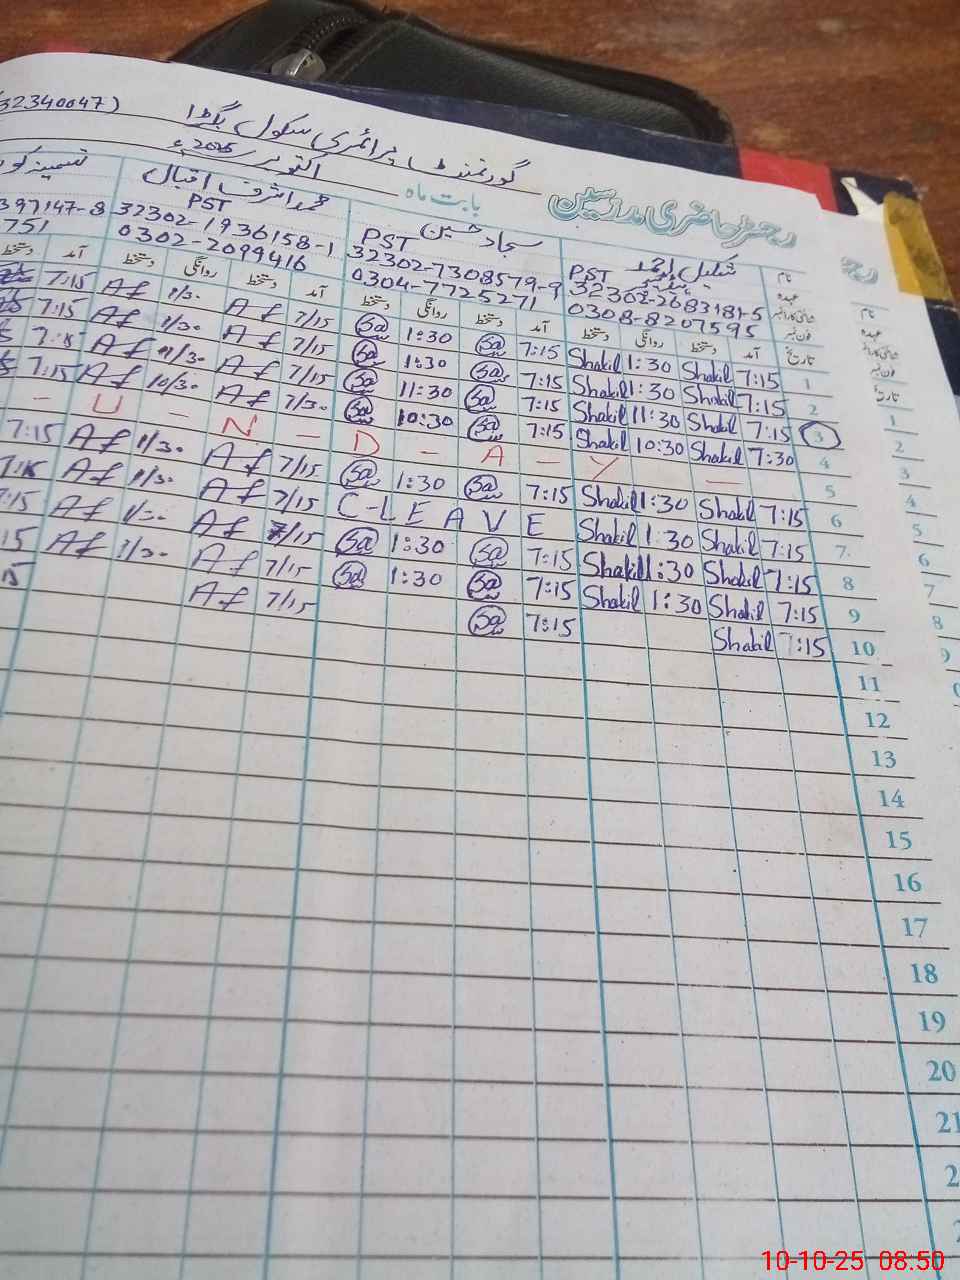 32340047)
گورنمنٹ پرائمری سکول بگڑا
رجسٹر حاضری مدرسین
بابت ماہ اکتوبر 2025ء
نام شکیل احمد سجاد حسین محمد اشرف اقبال
عہدہ PST PST PST
شناختی کارڈ نمبر 32302-2683181-5 32302-7308579-9 32302-1936158-1 397147-8
فون نمبر 0308-8207595 0304-7725271 0302-2099416 751
تاریخ آمد دستخط روانگی دستخط آمد دستخط روانگی دستخط آمد دستخط روانگی دستخط آمد دستخط
1 7:15 Shakil 1:30 Shakil 7:15 Sa 1:30 Sa 7/15 Af 1/30 Af 7:15
2 7:15 Shakil 1:30 Shakil 7:15 Sa 1:30 Sa 7/15 Af 1/30 Af 7:15
3 7:15 Shakil 11:30 Shakil 7:15 Sa 11:30 Sa 7/15 Af 11/30 Af 7:15
4 7:30 Shakil 10:30 Shakil 7:15 Sa 10:30 Sa 7/30 Af 10/30 Af 7:15
5 - U - N - D - A - Y -
6 7:15 Shakil 1:30 Shakil 7:15 Sa 1:30 Sa 7/15 Af 1/30 Af 7:15
7 7:15 Shakil 1:30 Shakil C-LEAVE 7/15 Af 1/30 Af 7:15
8 7:15 Shakil 1:30 Shakil 7:15 Sa 1:30 Sa 7/15 Af 1/30 Af 7:15
9 7:15 Shakil 1:30 Shakil 7:15 Sa 1:30 Sa 7/15 Af 1/30 Af 15
10 7:15 Shakil 7:15 Sa 7/15 Af 15
11
12
13
14
15
16
17
18
19
20
21
2
10-10-25 08.50